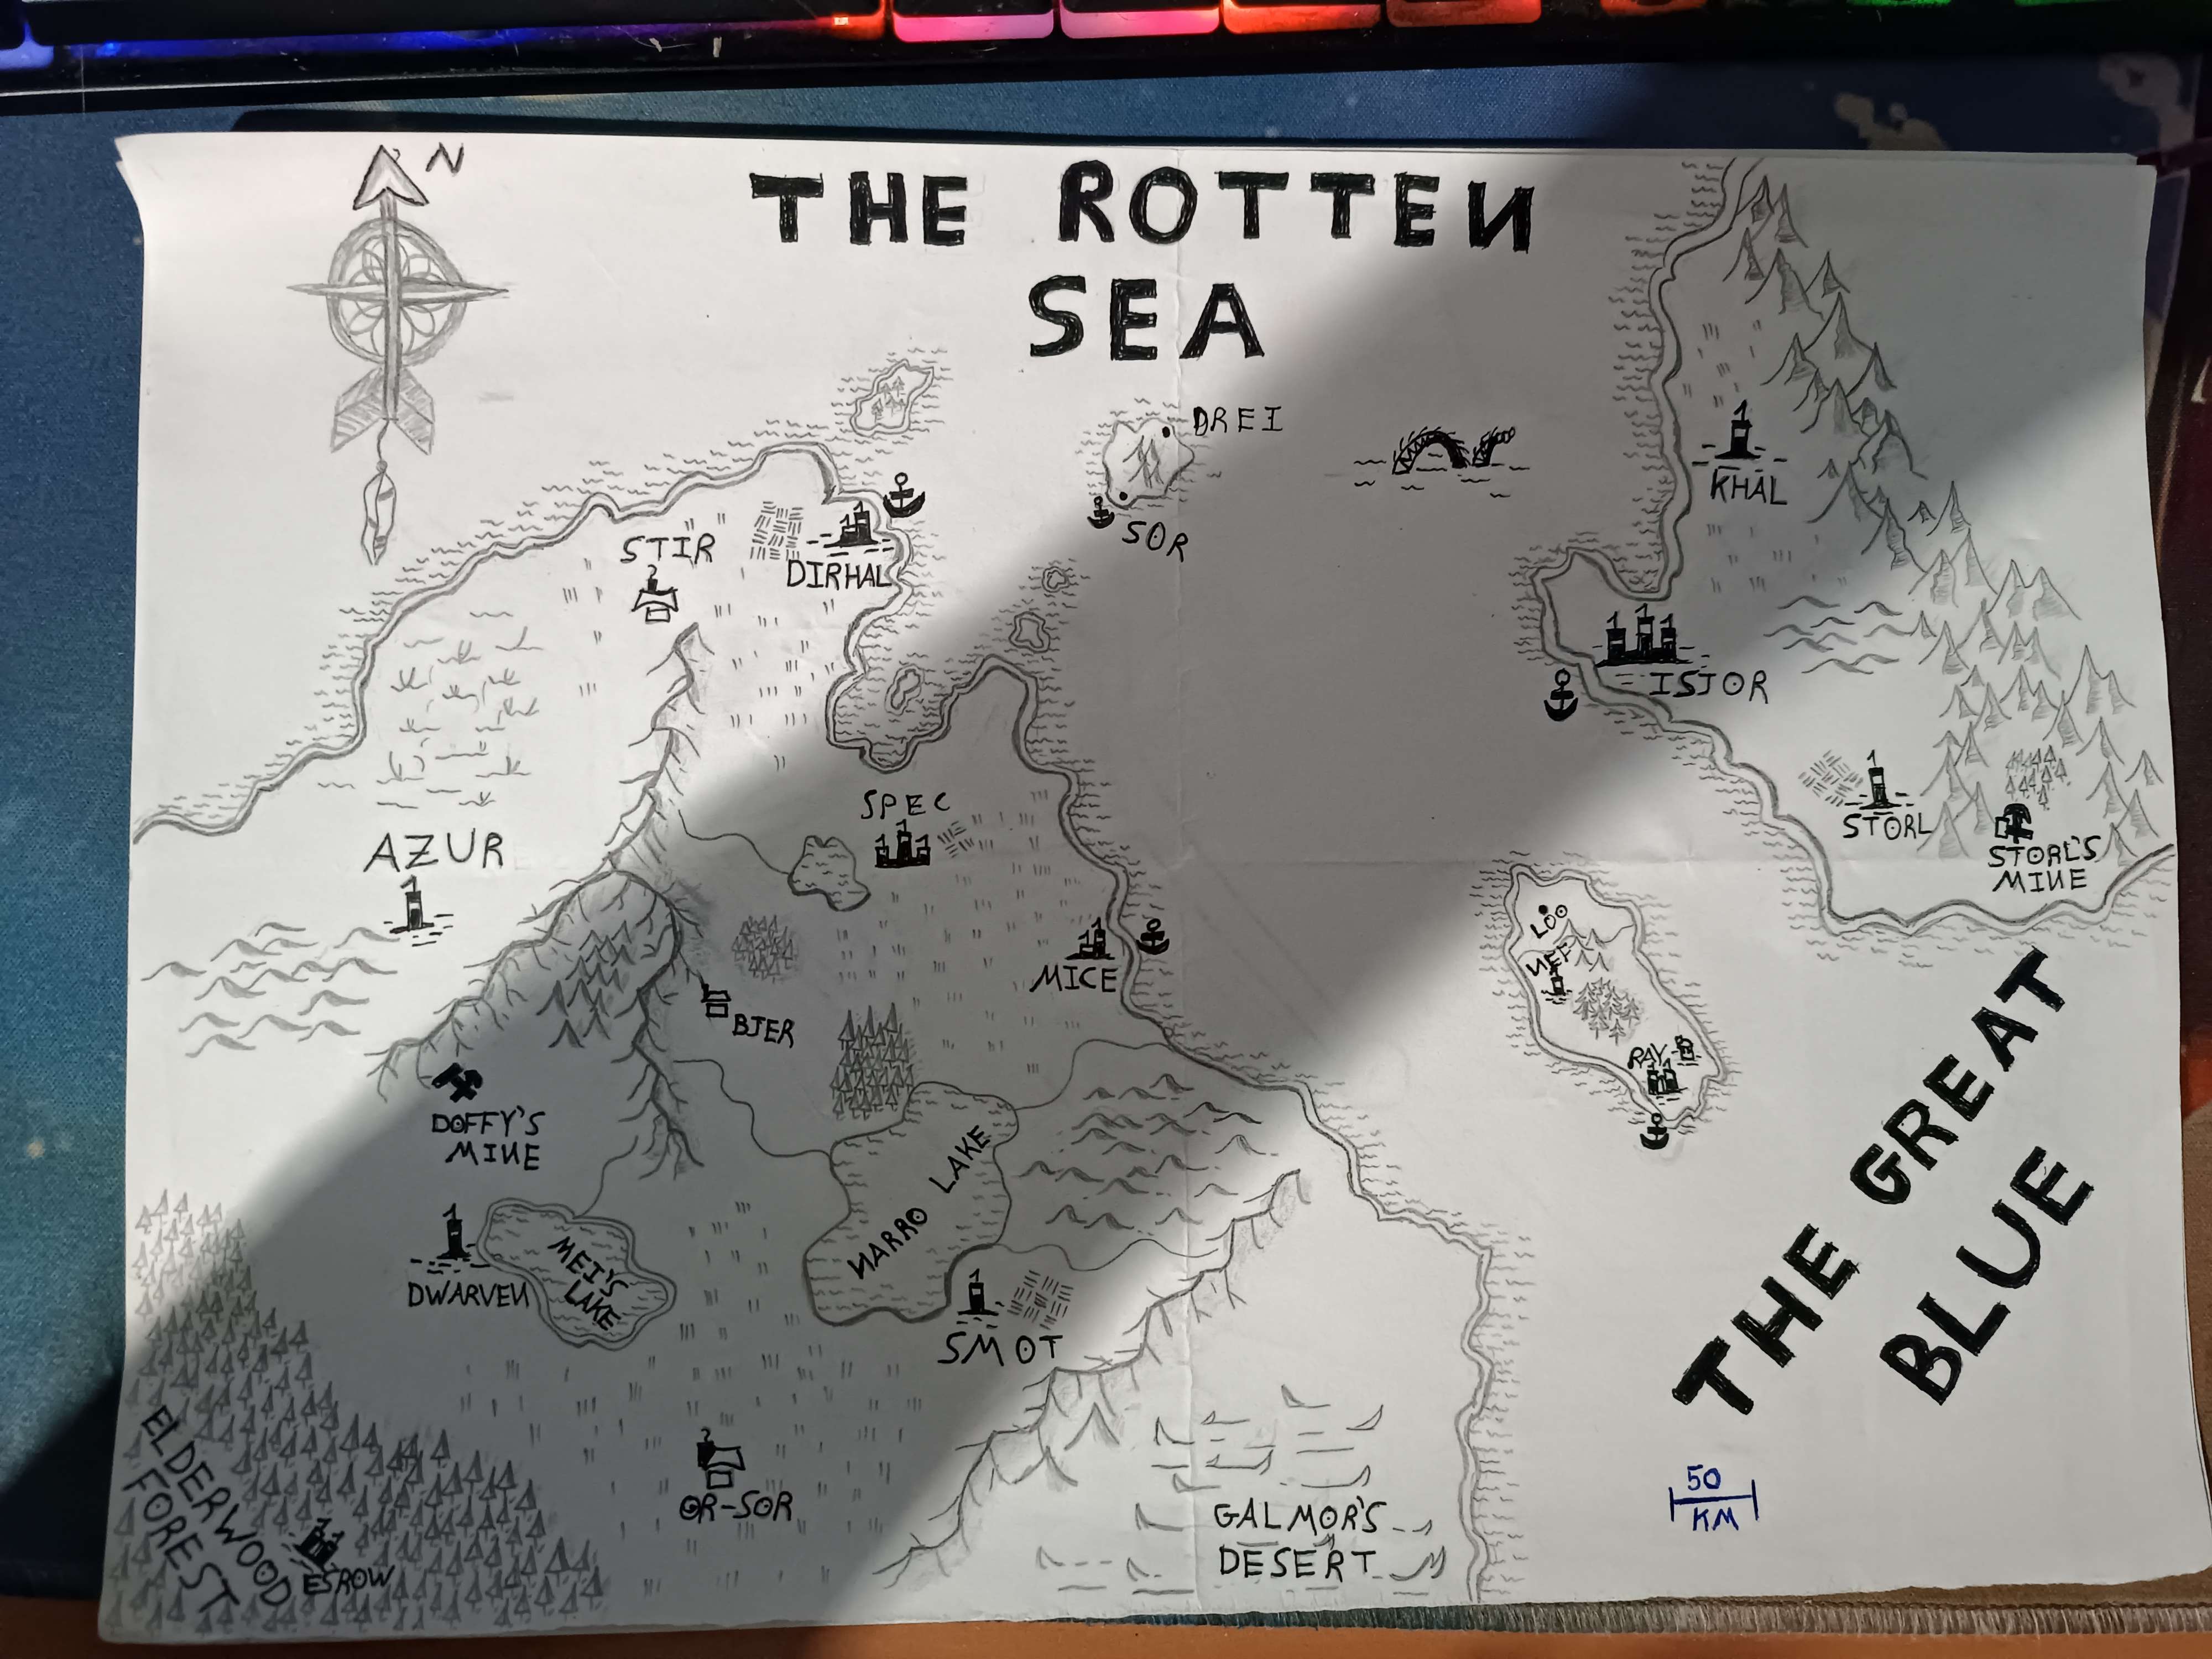 N
THE ROTTEN
SEA
DREI
SOR
KHAL
STIR
DIRHAL
ISJOR
SPEC
STORL
STORL'S
MINE
AZUR
LOO
NEF
MICE
BJER
RAY
DOFFY'S
MINE
NARRO LAKE
MEI'S
LAKE
DWARVEN
SMOT
THE GREAT
BLUE
ELDERWOOD
FOREST
ESROW
OR-SOR
GALMOR'S
DESERT
50
KM